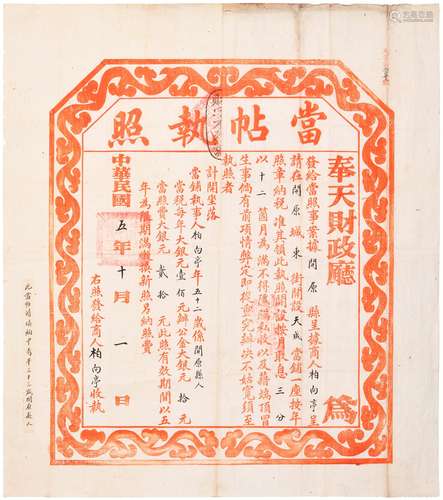 當帖執照
奉天財政廳 為
發給當照事案據開原縣呈據商人柏向亭呈
請在開原城東街開設天成當鋪一座按年
照章納稅准其領此執照開設按月取息三分
以十二箇月為滿不得隱漏私收以及藉端頂冒
生事倘有前項情弊定即究辦決不姑寬須至
執照者
計開坐落
當鋪執事人柏向亭年五十二歲係開原縣人
當稅每年大銀元壹佰元辦公金大銀元拾元
當照費大銀元貳拾元此照有效期間以五
年為限期滿繳換新照另納照費
右照發給商人柏向亭收執
中華民國五年十月一日